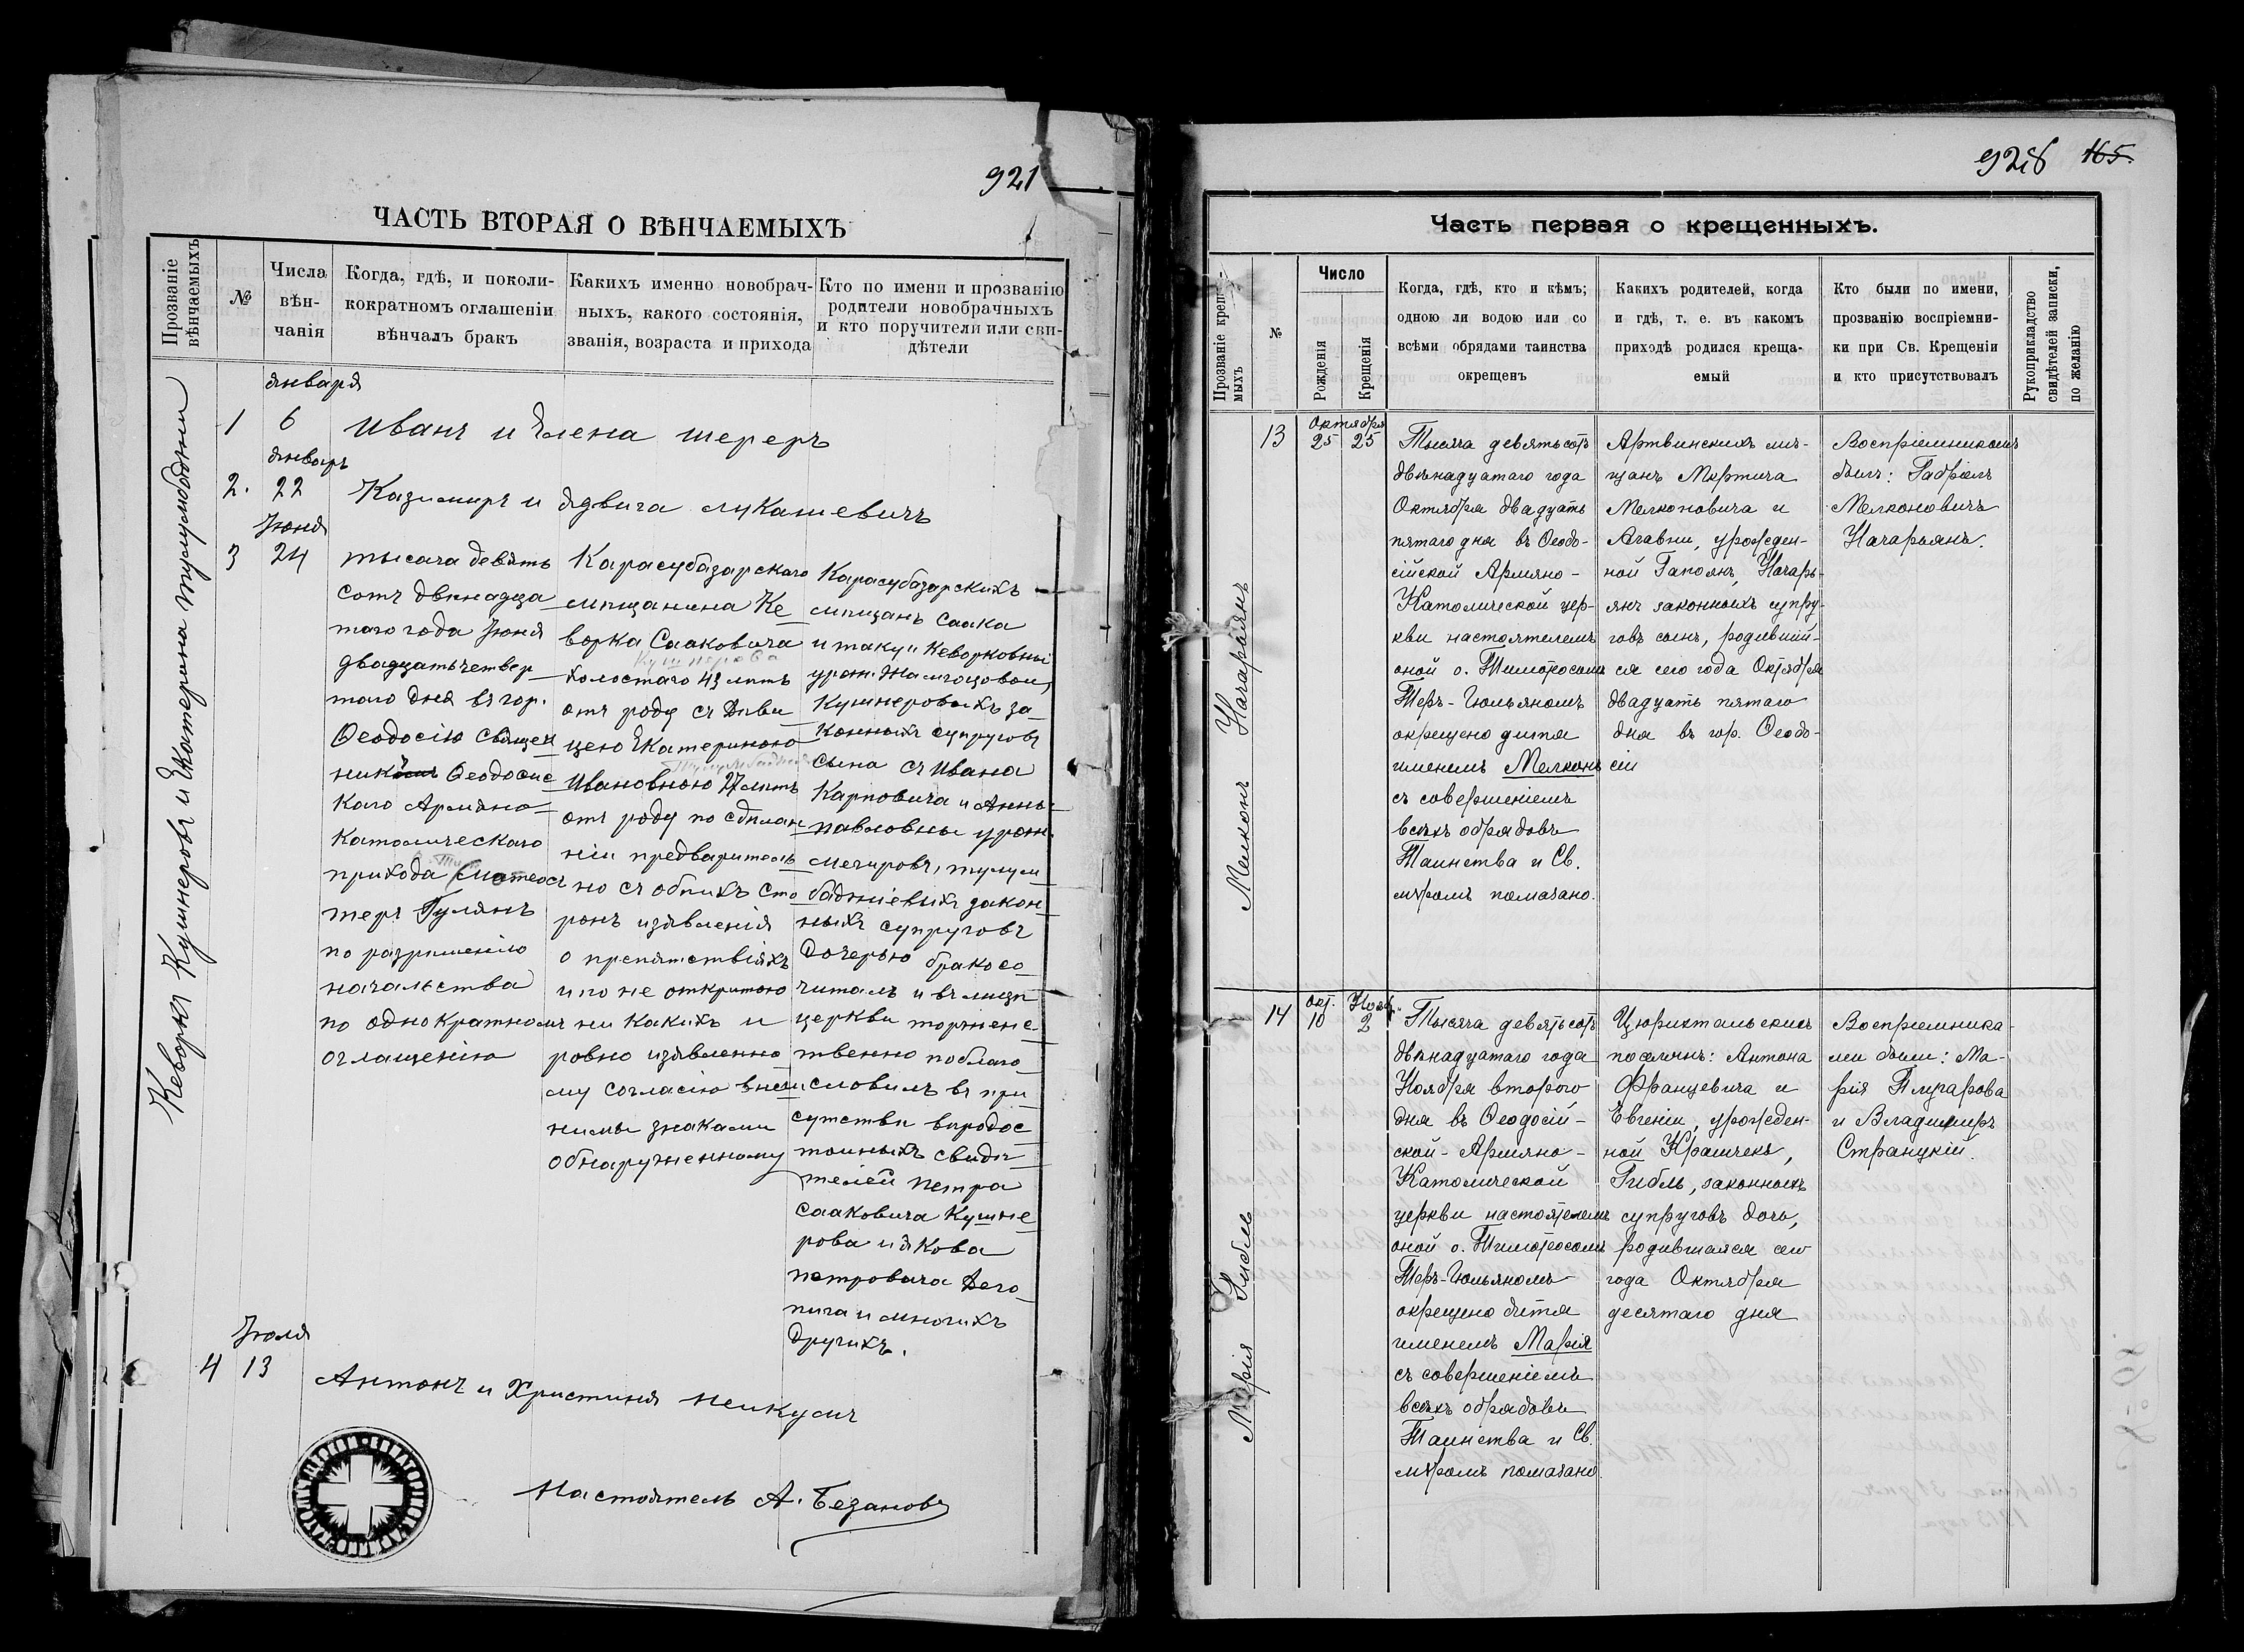 921
ЧАСТЬ ВТОРАЯ О ВѢНЧАЕМЫХЪ
Прозваніе
вѣнчаемыхъ
№
Числа
вѣн-
чанія
Когда, гдѣ, и поколи-
кократномъ оглашеніи
вѣнчалъ бракъ
Какихъ именно новобрач-
ныхъ, какого состоянія,
званія, возраста и прихода
Кто по имени и прозванію
родители новобрачныхъ
и кто поручители или сви-
дѣтели
января
1 6 Иванъ и Елена Шереръ
январь
2. 22 Казимиръ и Ядвига Лукашевичъ
Кеворкъ Кушнеровъ и Екатерина
Іюня
3 24
тысяча девять
сотъ двѣнадца
таго года Іюня
двадцать четвер
таго дня въ гор.
Ѳеодосію священ
Ѳеодосис
каго Армяно
Католическаго
прихода
теръ Гулянъ
по разрѣшенію
начальства
по однократномъ
оглашенію
Карасубазарскаго
мѣщанина Ке
ворка Сааковича
Кушнерова
холостаго 43 лѣтъ
отъ роду съ дѣви
цею Екатериною
Ивановною 27 лѣтъ
отъ роду по сдѣлан
ніи предваритель
но съ обѣихъ сто
ронъ изъявленія
о препятствіяхъ
и по не открытою
ни какихъ и
ровно изъявленно
му согласію внѣш
ними знаками
обнаруженному
Карасубазарскихъ
мѣщанъ Саака
и Такуи Кеворковны
урож.
Кушнеровыхъ за
конныхъ супруговъ
сына съ Ивана
Карповича и Анны
Павловны урож.
ныхъ супруговъ
дочерью бракосо
читалъ и въ лицѣ
церкви торжене
твенно поблаго
словилъ въ при
сутстви
тоиныхъ свидѣ
телей Петра
Сааковича Кушне
рова и Якова
Петровича
и многихъ
другихъ.
Іюля
4 13 Антонъ и Христина
Настоятель А. Безановъ
928 165.
Часть первая о крещенныхъ.
Прозваніе крещен-
мыхъ
№
Число
Рожденія
Крещенія
Когда, гдѣ, кто и кѣмъ;
одною ли водою или со
всѣми обрядами таинства
окрещенъ
Какихъ родителей, когда
и гдѣ, т. е. въ какомъ
приходѣ родился креща-
емый
Кто были по имени,
прозванію воспріемни-
ки при Св. Крещеніи
и кто присутствовалъ
Рукоприкладство
свидѣтелей записки,
по желанію
Мелконъ Начарьянъ
13
Октября
25 25
Тысяча девятьсотъ
двѣнадцатаго года
Октября двадцать
пятаго дня въ Ѳеодо-
сійской Армяно-
Католической цер-
кви настоятелемъ
оной о. Тимоѳеосомъ
Теръ-Гюльяномъ
окрещено дитя
именемъ Мелконъ
съ совершеніемъ
всѣхъ обрядовъ
Таинства и Св.
мѵромъ помазано.
Артвинскихъ мѣ-
щанъ Мкртича
Мелконовича и
Агавни, урожден-
ной Гапоянъ, Начарь-
янъ законныхъ супру-
говъ сынъ, родивший-
ся сего года Октября
двадцать пятаго
дня въ гор. Ѳеодо-
сіи
Воспріемникомъ
былъ: Габріелъ
Мелконовичъ
Начарьянъ.
Марія Гибль
14
Окт. Нояб.
10 2
Тысяча девятьсотъ
двѣнадцатаго года
Ноября второго
дня въ Ѳеодосій-
ской-Армяно-
Католической
церкви настоятелемъ
оной о. Тимоѳеосомъ
Теръ-Гюльяномъ
окрещено дитя
именемъ Марія
съ совершеніемъ
всѣхъ обрядовъ
Таинства и Св.
мѵромъ помазано.
Цюрихтальскихъ
поселянъ: Антона
Францевича и
Евгеніи, урожден-
ной Крамчекъ,
Гибль, законныхъ
супруговъ дочь,
родившаяся сего
года Октября
десятаго дня
Воспріемника-
ми были: Ма-
рія
и Владимиръ
Странцкій.